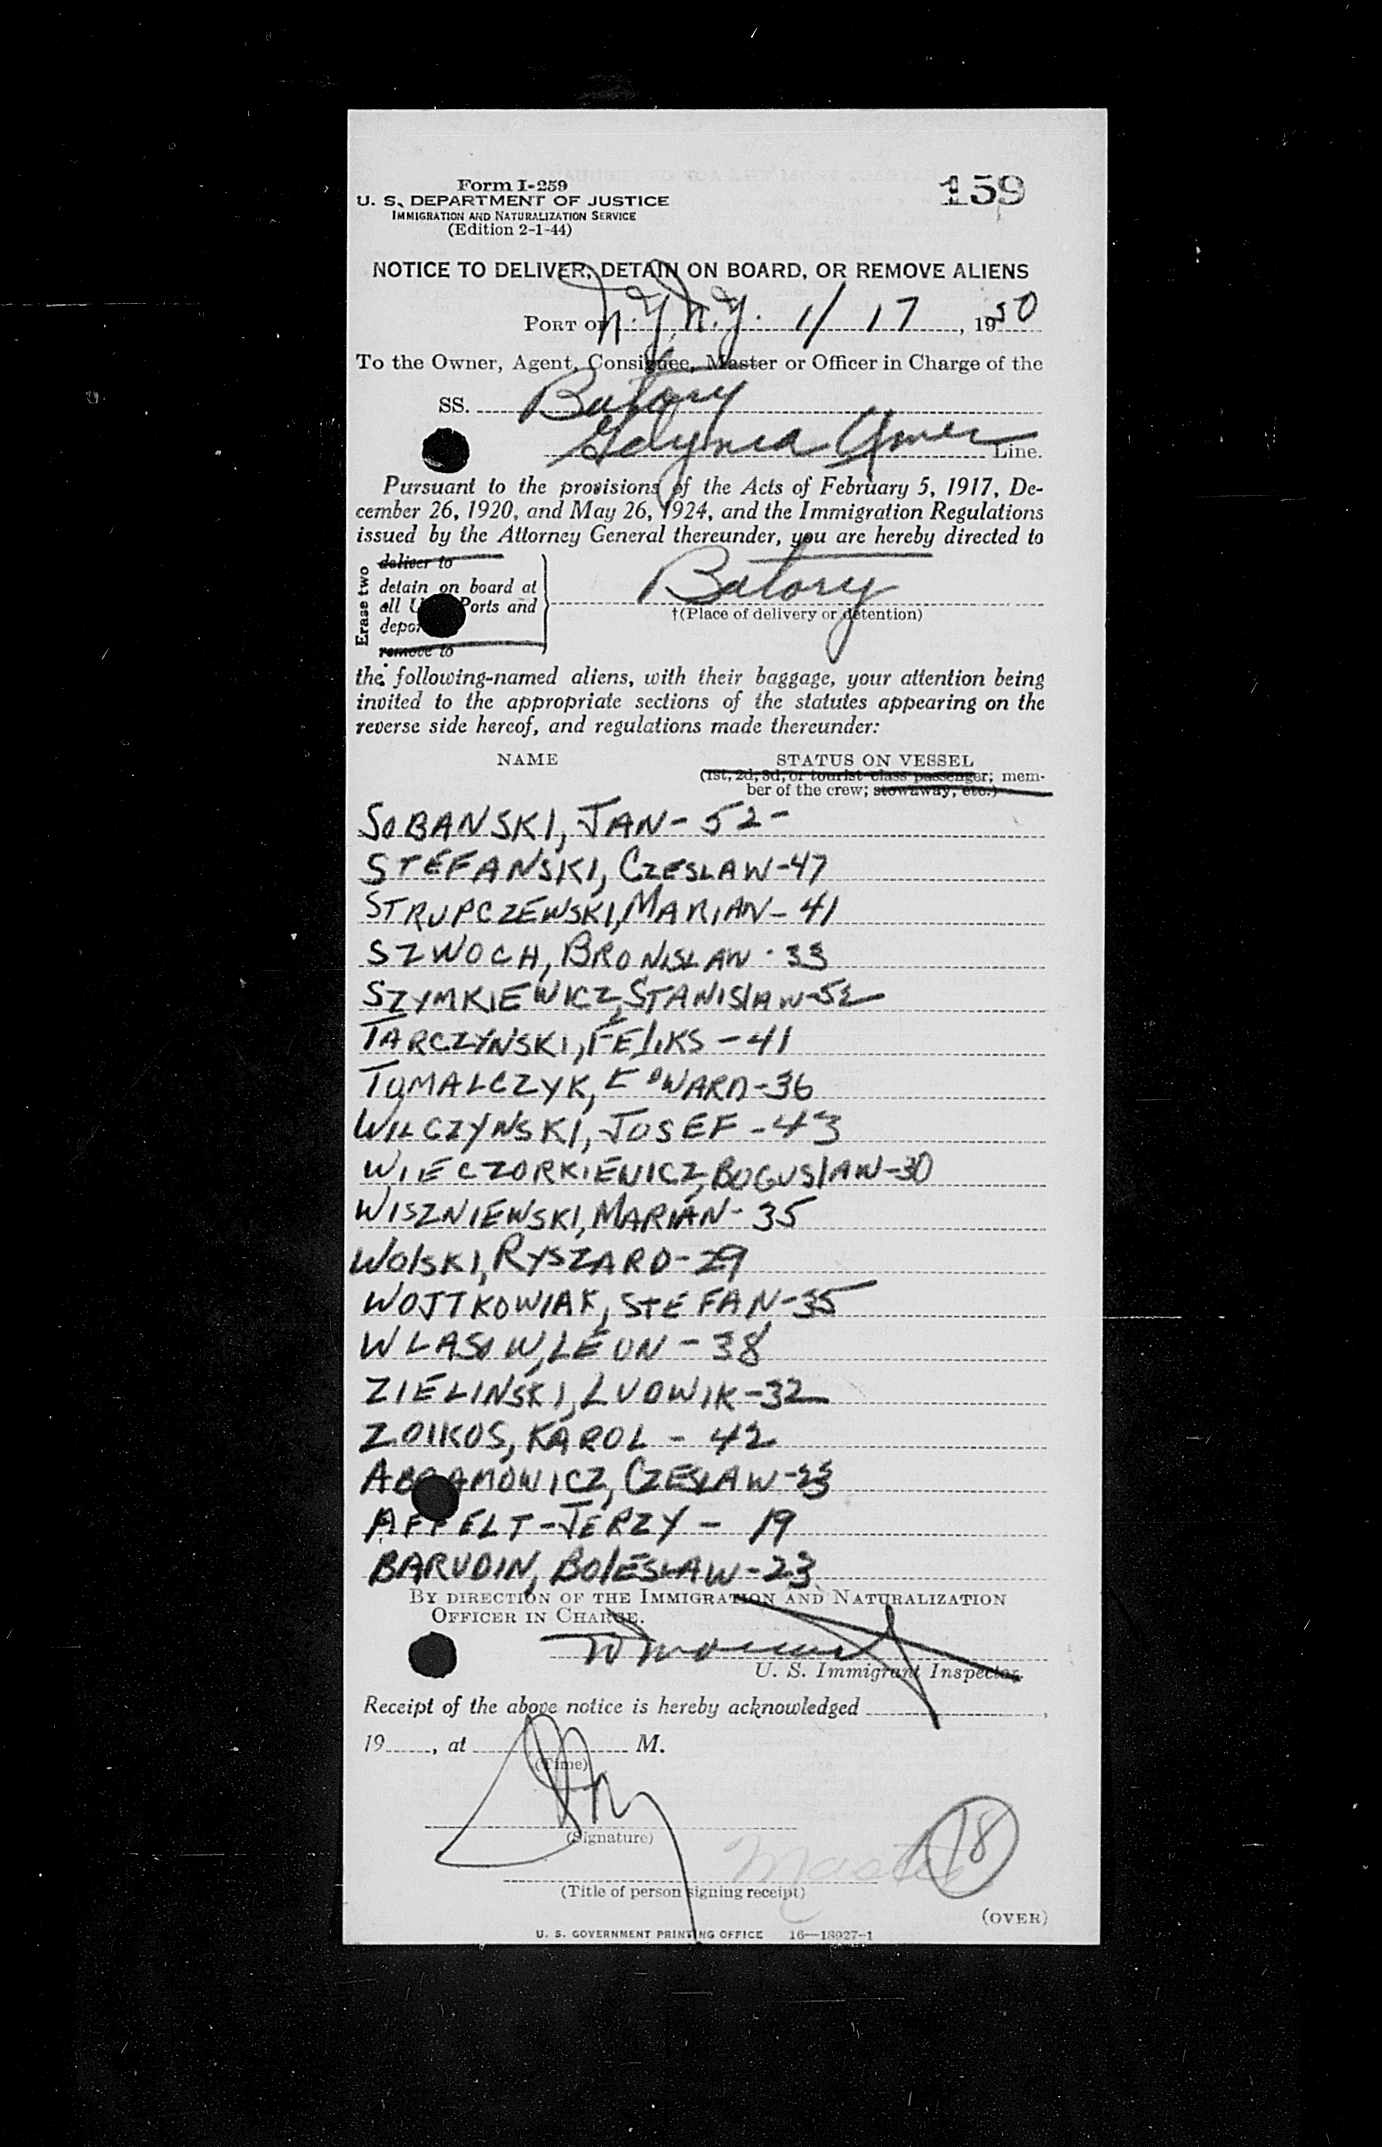 Form I-259
159
U. S. DEPARTMENT OF JUSTICE
IMMIGRATION AND NATURALIZATION SERVICE
(Edition 2-1-44)
NOTICE TO DELIVER, DETAIN ON BOARD, OR REMOVE ALIENS
PORT OF N.Y. N.Y. 1/17, 1950
To the Owner, Agent, Consignee, Master or Officer in Charge of the
SS. Batory
Gdynia Amer Line.
Pursuant to the provisions of the Acts of February 5, 1917, De-
cember 26, 1920, and May 26, 1924, and the Immigration Regulations
issued by the Attorney General thereunder, you are hereby directed to
Erase two
deliver to
detain on board at
all Ports and
remove to
Batory
†(Place of delivery or detention)
the following-named aliens, with their baggage, your attention being
invited to the appropriate sections of the statutes appearing on the
reverse side hereof, and regulations made thereunder:
NAME STATUS ON VESSEL
(1st, 2d, 3d, or tourist class passenger; mem-
ber of the crew; stowaway, etc.)
SOBANSKI, JAN - 52 -
STEFANSKI, CZESLAW - 47
STRUPCZEWSKI, MARIAN - 41
SZWOCH, BRONISLAW - 33
SZYMKIEWICZ, STANISLAW - 52
TARCZYNSKI, FELIKS - 41
TOMALCZYK, EDWARD - 36
WILCZYNSKI, JOSEF - 43
WIECZORKIEWICZ, BOGUSLAW - 30
WISZNIEWSKI, MARIAN - 35
WOLSKI, RYSZARD - 29
WOJTKOWIAK, STEFAN - 35
WLASOW, LEON - 38
ZIELINSKI, LUDWIK - 32
ZOIKOS, KAROL - 42
ABRAMOWICZ, CZESLAW - 33
APPELT - JERZY - 19
BARUDIN, BOLESLAW - 23
BY DIRECTION OF THE IMMIGRATION AND NATURALIZATION
OFFICER IN CHARGE.
U. S. Immigrant Inspector.
Receipt of the above notice is hereby acknowledged ,
19 , at M.
(Time)
(Signature)
Master
18
(Title of person signing receipt)
(OVER)
U. S. GOVERNMENT PRINTING OFFICE 16—18927-1